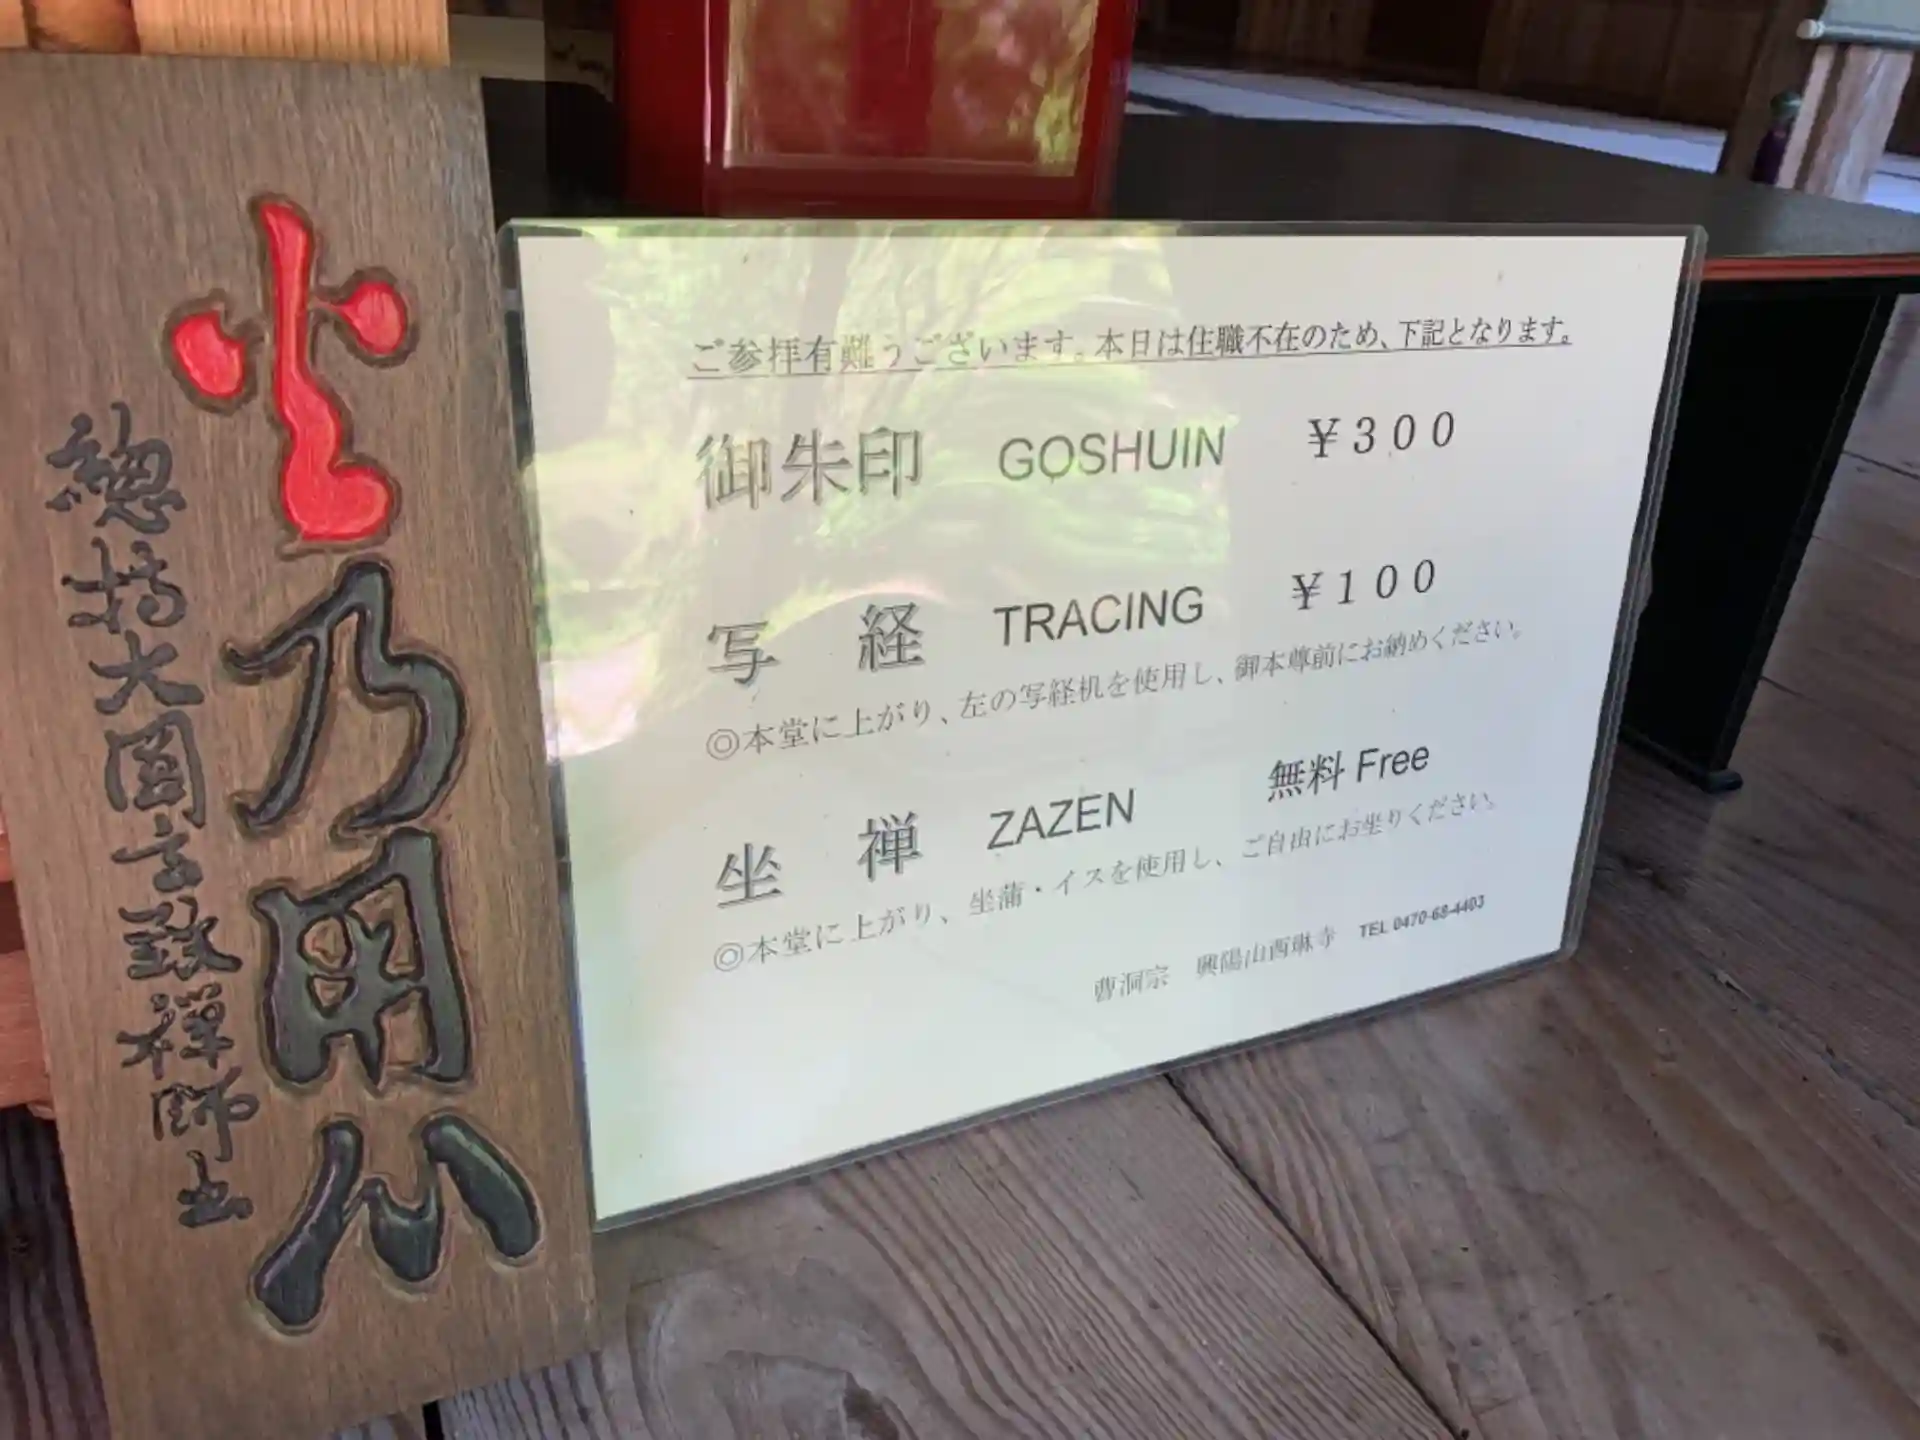 火乃用心
總持大圓玄致禅師書
ご参拝有難うございます。本日は住職不在のため、下記となります。
御朱印 GOSHUIN ￥300
写 経 TRACING ￥100
◎本堂に上がり、左の写経机を使用し、御本尊前にお納めください。
坐 禅 ZAZEN 無料 Free
◎本堂に上がり、坐蒲・イスを使用し、ご自由にお坐りください。
曹洞宗 興陽山西琳寺 TEL 0470-68-4403